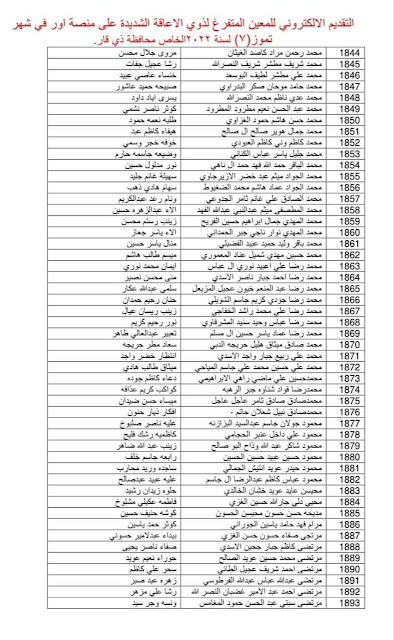 التقديم الالكتروني للمعين المتفرغ لذوي الاعاقة الشديدة على منصة اور في شهر
تموز(٧) لسنة ٢٠٢٢الخاص محافظة ذي قار.
1844 محمد رحمن مراد كاصد الغيثان مروى جلال محسن
1845 محمد شريف مطشر شريف النصرالله رشا عجيل جفات
1846 محمد علي مطشر لطيف البوسعد خنساء عاصي عبيد
1847 محمد حامد موحان صكر البدراوي صبيحه حميد عاشور
1848 محمد عدي ناظم محمد النصرالله يسرى اياد داود
1849 محمد عبد الحسن نعيم مطرود المطرود كوثر ناصر نشمي
1850 محمد حسن هاشم حمود الغزاوي طليه نعمه حمود
1851 محمد جمال هوير صالح ال صالح هيفاء كاظم عبد
1852 محمد كاظم وني كاظم العبودي خوفه خجر وسمي
1853 محمد جليل ياسر عباس الكناني وضيعه جاسمه حازم
1854 محمد الباقر حمد الله فهد حمد ال ناهي نور مدلول حسين
1855 محمد الجواد ميثم عبد خضر الازيرجاوي سهيلة غانم جليد
1856 محمد الجواد عماد هاشم محمد الضغيوط سهام هادي ذهب
1857 محمد الصادق علي غانم ثامر الجدوعي ونام رعد عبدالكريم
1858 محمد المصطفى ميثم عبدالنبي عبدالله الفهد الاء عبدالزهره حسين
1859 محمد المهدي جمال ابراهيم حسين الفريح زينب رستم محسن
1860 محمد المهدي نوار ناجي جبر الحمداني الاء ياسر جعاز
1861 محمد باقر وليد حميد عبيد الفضيلي منال ياسر حسين
1862 محمد حسين مهدي شميل عناد المعموري ميسم طالب هاشم
1863 محمد رضا علي اعبيد نوري ال عباس ايمان محمد نوري
1864 محمد رضا احمد جبار ناصر الاسدي منى محسن نصير
1865 محمد رضا عبد المنعم خيون عجيل المزيعل سلمى عبدالله عكار
1866 محمد رضا جودي كريم جاسم الشويلي حنان رحيم حمدان
1867 محمد رضا علي محمد راشد الخفاجي زينب ريسان عيال
1868 محمد رضا عباس وحيد سنيد المشرفاوي نور رحيم كريم
1869 محمد رضا عماد ياسر حسين ال مسلم تعبير عبدالعالي طاهر
1870 محمد صادق ميثاق هليل خريجه الدبي سعاد مطر خريجه
1871 محمد علي ربيع جبار واجد الاسدي انتظار خضر واجد
1872 محمد علي حسين محمد علي جاسم المياحي ميثاق طالب هادي
1873 محمدحسين علي ماضي راهي الابراهيمي دعاء كاظم جوده
1874 محمدرضا فؤاد شناوه جبر الرهبه كواكب كريم عذافه
1875 محمدصادق صادق ثامر عاجل عاجل ميساء حسن ضيدان
1876 محمدصادق نبيل شعلان حاتم - افكار ذيار حنون
1877 محمود جولان جاسم عبدالسيد البزازنه عليه ناصر صليوخ
1878 محمود علي داخل عنبر الحجامي كاظميه رشك فليح
1879 محمود شاكر عبد الله وناح البو صالح زينب عبد الله ضاهر
1880 محمود حسين عبيد حسين الحسين رابعه جاسم خلف
1881 محمود حيدر عويد انتيش الجمالي ساجده وريد محارب
1882 محمود عباس كاظم عبدالرضا ال جاسم عليه عبيد عبدصالح
1883 محيسن عايد عويد خشان الخالدي حلوه زيدان رشيد
1884 محيي دلي جارالله حسين الغزي فاطمه عكيلي مشلوخ
1885 مديحه حسن حسون محيسن الحسون كوشه حنيف حسين
1886 مرام فهد حامد ياسين الجوراني كوثر حمد ياسين
1887 مرتجى صفاء حسون حسن الغزي بيداء عبدالامير حسوني
1888 مرتضى كاظم جبار جحين الاسدي صفاء ناصر يحيى
1889 مرتضى محمد حسين عويد الصالح حوراء نعيم عويد
1890 مرتضى احمد شريف عجيل الطائي سحر علي كاظم
1891 مرتضى عبدالله عباس عبدالله القرطوسي زهره عبد صبر
1892 مرتضى احمد عبد الامير غضبان النصر الله رشا علي مزهر
1893 مرتضى سبتي عبد الحسن حمود المغامس ونسه وجر سيد